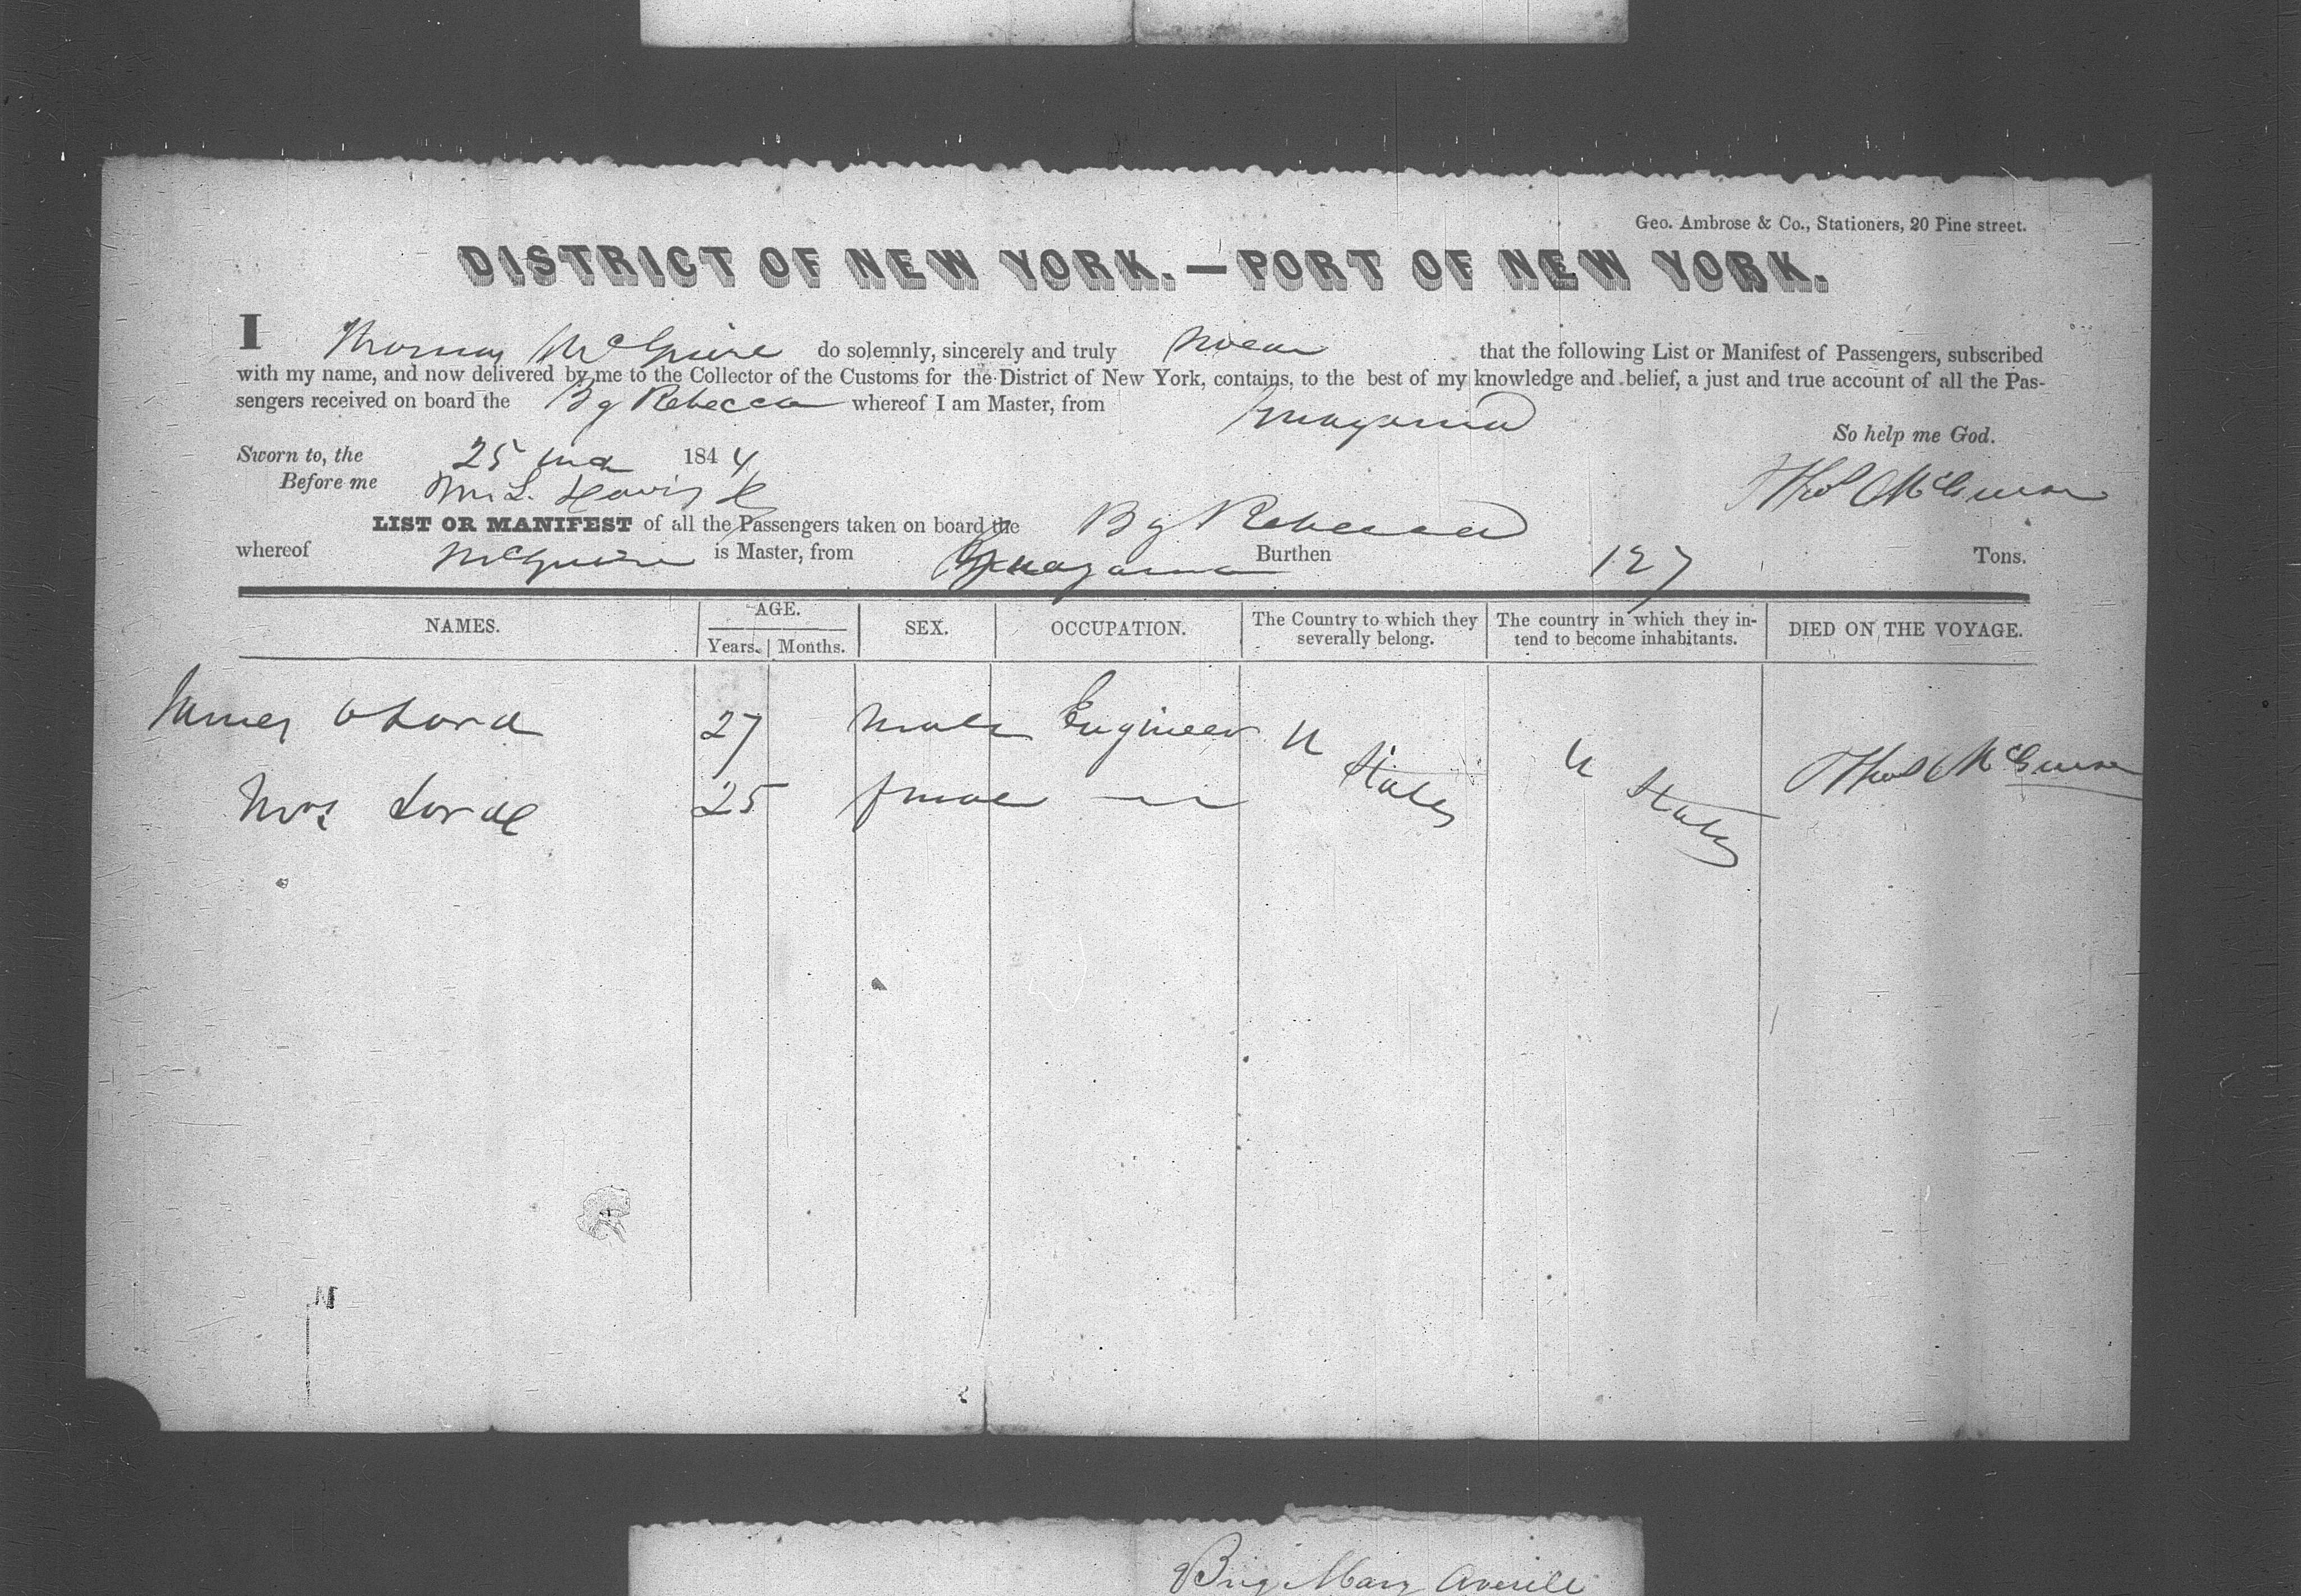 Geo. Ambrose & Co., Stationers, 20 Pine street.
DISTRICT OF NEW YORK.—PORT OF NEW YORK.
I Thomas McGuire do solemnly, sincerely and truly swear that the following List or Manifest of Passengers, subscribed
with my name, and now delivered by me to the Collector of the Customs for the District of New York, contains, to the best of my knowledge and belief, a just and true account of all the Pas-
sengers received on board the Bg Rebecca whereof I am Master, from
So help me God.
Sworn to, the 25 1844
Before me Thos McGuire
LIST OR MANIFEST of all the Passengers taken on board the Bg Rebecca
whereof McGuire is Master, from Burthen 127 Tons.
NAMES. AGE. Years. Months. SEX. OCCUPATION. The Country to which they severally belong. The country in which they in-tend to become inhabitants. DIED ON THE VOYAGE.
James Lord 27 male Engineer U States U States Thos McGuire
Mrs Lord 25 female
Brig Mary Averill